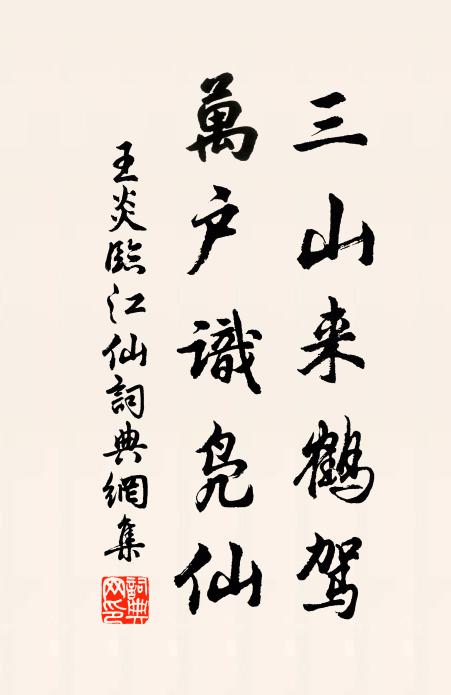 三山来鹤驾
萬户識凫仙
王炎臨江仙詞典網集
詞典網印